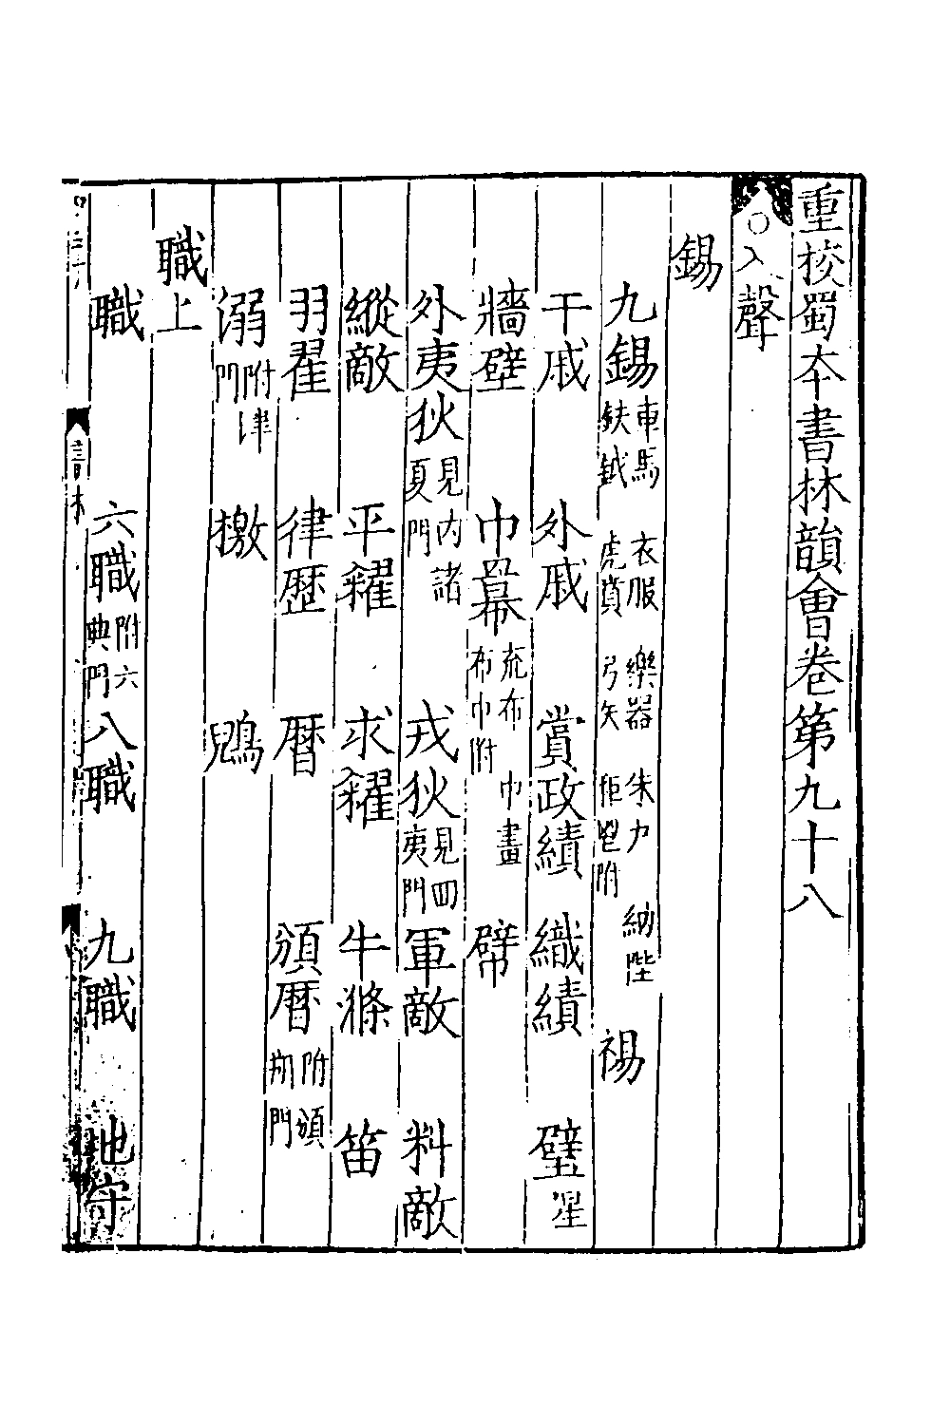 重校蜀本書林韻會卷第九十八
○入聲
錫
九錫 車馬 衣服 樂器 朱戶 納陛 鈇鉞 虎賁 弓矢 秬鬯附 裼
干戚 外戚 賞政績 織績 壁星
牆壁 巾幕 充布 巾畫 布巾附 幦
外夷狄 見內諸夏門 戎狄 見四夷門 軍敵 料敵
縱敵 平糴 求糴 牛滌 笛
羽翟 律歷 曆 頒曆 附頒朔門
溺 附津門 檄 鶂
職上
職 六職 附六典門 八職 九職 地守